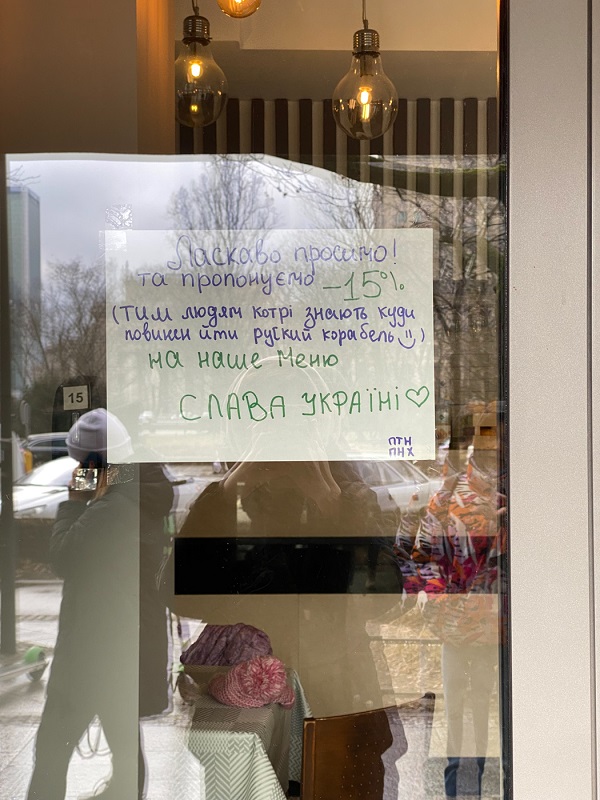 Ласкаво просимо!
та пропонуємо -15%
(тим людям котрі знають куди
повинен йти руський корабель)
на наше меню
СЛАВА УКРАЇНІ ♡
ПТН
ПНХ
15